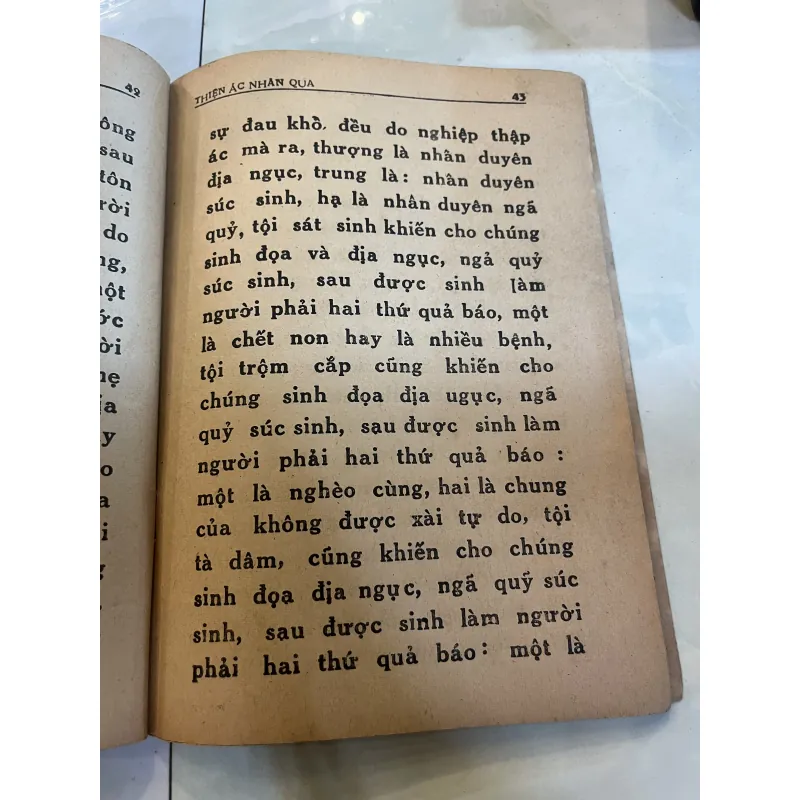 42
ông
sau
tôn
rời
do
ng,
một
ớc
ời
hẹ
ịa
y
o
a
i
g
THIỆN ÁC NHÂN QUẢ 43
sự đau khổ. đều do nghiệp thập
ác mà ra, thượng là nhân duyên
địa ngục, trung là: nhân duyên
súc sinh, hạ là nhân duyên ngã
quỷ, tội sát sinh khiến cho chúng
sinh đọa và địa ngục, ngả quỷ
súc sinh, sau được sinh làm
người phải hai thứ quả báo, một
là chết non hay là nhiều bệnh,
tội trộm cắp cũng khiến cho
chúng sinh đọa địa ugục, ngã
quỷ súc sinh, sau được sinh làm
người phải hai thứ quả báo :
một là nghèo cùng, hai là chung
của không được xài tự do, tội
tà dâm, cũng khiến cho chúng
sinh đọa địa ngục, ngã quỹ súc
sinh, sau được sinh làm người
phải hai thứ quả báo: một là